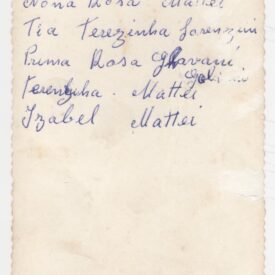 Nona Rosa Mattei
Tia Terezinha Lorenzini
Prima Rosa
Terezinha. Mattei
Izabel Mattei